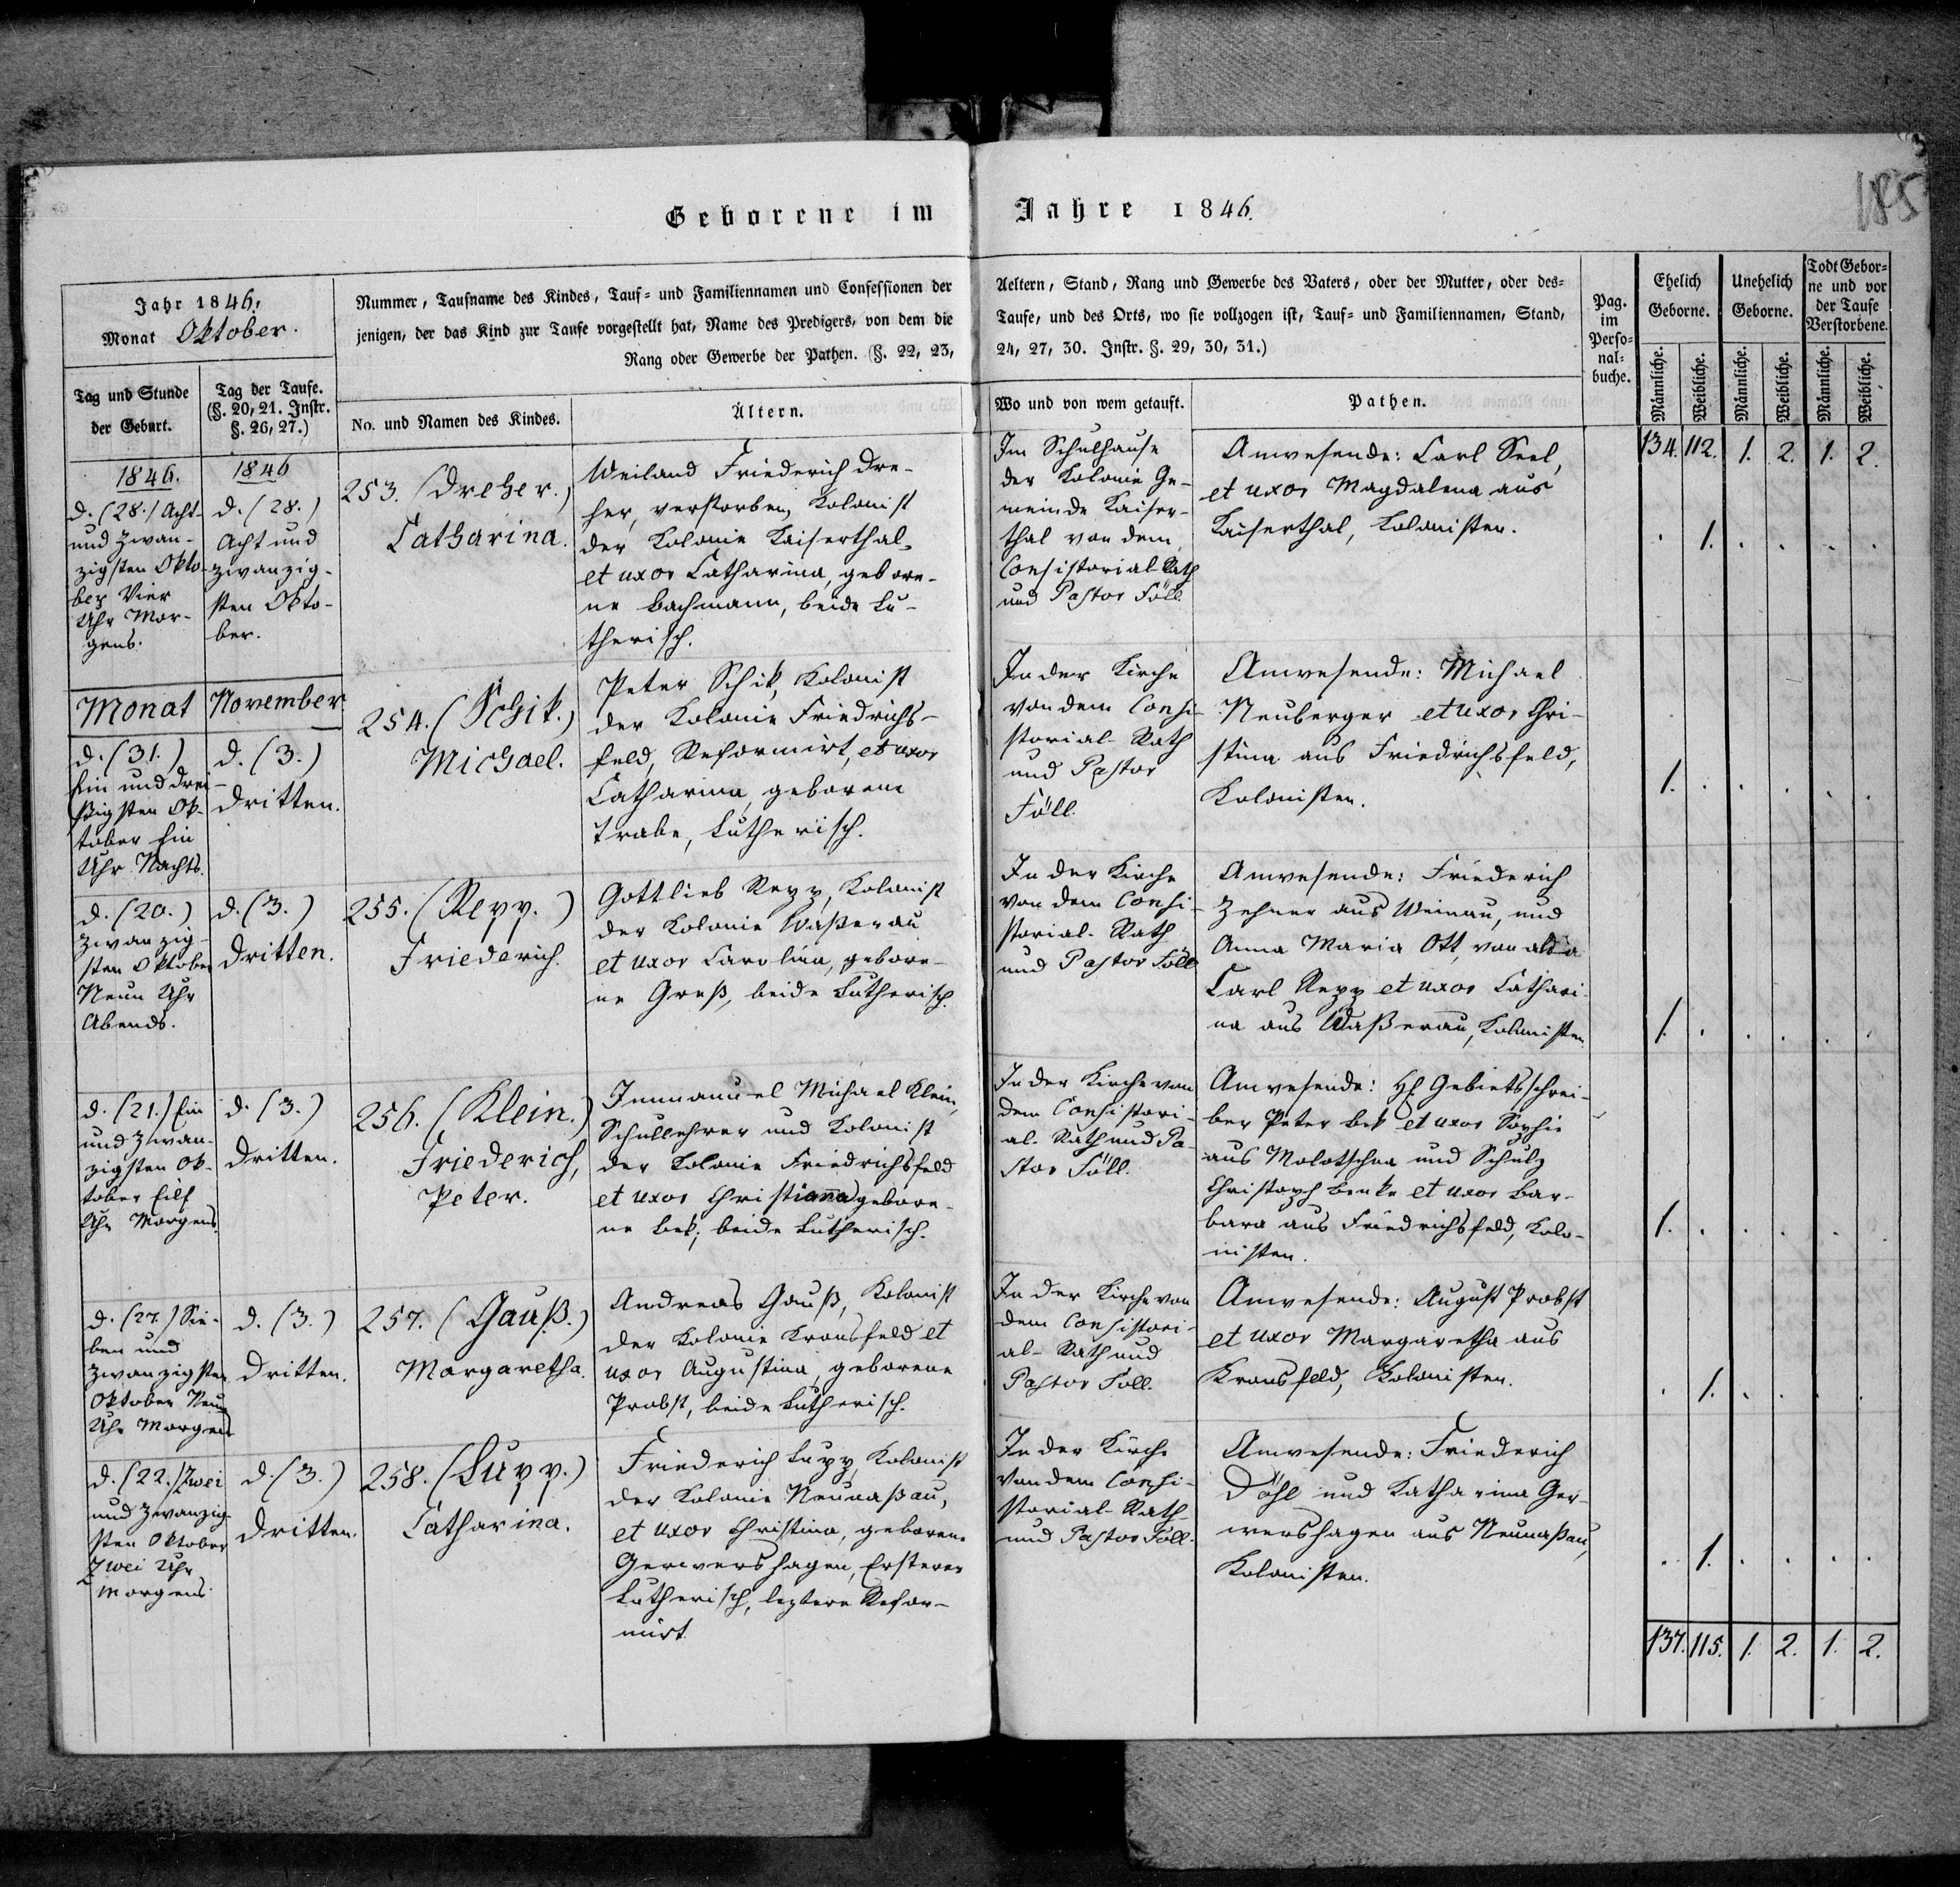 Geborene im Jahre 1846.
185
Jahr 1846.
Monat Oktober.
Nummer, Taufname des Kindes, Tauf- und Familiennamen und Confessionen der
jenigen, der das Kind zur Taufe vorgestellt hat, Name des Predigers, von dem die
Rang oder Gewerbe der Pathen. (§. 22, 23,
Aeltern, Stand, Rang und Gewerbe des Vaters, oder der Mutter, oder des-
Taufe, und des Orts, wo sie vollzogen ist, Tauf- und Familiennamen, Stand,
24, 27, 30. Instr. §. 29, 30, 31.)
Pag.
im
Perso-
nal-
buche.
Ehelich
Geborne.
Unehelich
Geborne.
Todt Gebor-
ne und vor
der Taufe
Verstorbene.
Männliche.
Weibliche.
Männliche.
Weibliche.
Männliche.
Weibliche.
Tag und Stunde
der Geburt.
Tag der Taufe.
(§. 20, 21. Instr.
§. 26, 27.)
No. und Namen des Kindes.
Ältern.
Wo und von wem getauft.
Pathen.
134. 112. 1. 2. 1. 2.
1846.
d. (28.) Acht-
und zwan-
zigsten Okto-
ber Vier
Uhr Mor-
gens.
1846
d. (28.)
Acht und
zwanzig-
sten Okto-
ber.
253. (Dreher.)
Catharina.
Weiland Friederich Dre-
her, verstorben, Kolonist
der Kolonie Kaiserthal,
et uxor Catharina, gebore-
ne Bachmann, beide Lu-
therisch.
Im Schulhause
der Kolonie Ge-
meinde Kaiser-
thal von dem
Consistorial-Rath
und Pastor Föll.
Anwesende: Carl Seel,
et uxor Magdalena aus
Kaiserthal, Kolonisten.
. 1. . . . .
Monat November
d. (31.)
Ein und drei-
ßigsten Ok-
tober Ein
Uhr Nachts.
d. (3.)
Dritten.
254. (Schik.)
Michael.
Peter Schik, Kolonist
der Kolonie Friedrichs-
feld, Reformirt, et uxor
Catharina, geborene
Trabe, Lutherisch.
In der Kirche
von dem Consi-
storial-Rath
und Pastor
Föll.
Anwesende: Michael
Neuberger et uxor Chri-
stina aus Friedrichsfeld,
Kolonisten.
1. . . . . .
d. (20.)
Zwanzig-
sten Oktober
Neun Uhr
Abends.
d. (3.)
Dritten.
255. (Repp.)
Friederich.
Gottlieb Repp, Kolonist
der Kolonie Waßerau
et uxor Carolina, gebore-
ne Groß, beide Lutherisch.
In der Kirche
von dem Consi-
storial-Rath
und Pastor Föll
Anwesende: Friederich
Zehner aus Weinau, und
Anna Maria Ott, von alda
Carl Repp et uxor Cathari-
na aus Waßerau, Kolonisten.
1. . . . . .
d. (21.) Ein
und zwan-
zigsten Ok-
tober Eilf
Uhr Morgens.
d. (3.)
Dritten.
256. (Klein.)
Friederich,
Peter.
Immanuel Michael Klein,
Schullehrer und Kolonist
der Kolonie Friedrichsfeld
et uxor Christianna gebore-
ne Bek, beide Lutherisch.
In der Kirche von
dem Consistori-
al-Rath und Pa-
stor Föll.
Anwesende: H. Gebietsschrei-
ber Peter Bek et uxor Sophie
aus Molotschna und Schulz
Christoph Benke et uxor Bar-
bara aus Friedrichsfeld, Kolo-
nisten.
1. . . . . .
d. (27.) Sie-
ben und
zwanzigsten
Oktober Neun
Uhr Morgens
d. (3.)
Dritten.
257. (Gauß.)
Margaretha.
Andreas Gauß, Kolonist
der Kolonie Kronsfeld et
uxor Augustina, geborene
Probst, beide Lutherisch.
In der Kirche von
dem Consistori-
al-Rath und
Pastor Föll.
Anwesende: August Probst
et uxor Margaretha aus
Kronsfeld, Kolonisten.
. 1. . . . .
d. (22.) Zwei
und Zwanzig-
sten Oktober
Zwei Uhr
Morgens
d. (3.)
Dritten.
258. (Lupp.)
Catharina.
Friederich Lupp, Kolonist
der Kolonie Neunaßau,
et uxor Christina, geborene
Gerwershagen, Ersterer
Lutherisch, leztere Refor-
mirt.
In der Kirche
von dem Consi-
storial-Rath
und Pastor Föll.
Anwesende: Friederich
Döhl und Katharina Ger-
wershagen aus Neunaßau,
Kolonisten.
. 1. . . . .
137. 115. 1. 2. 1. 2.